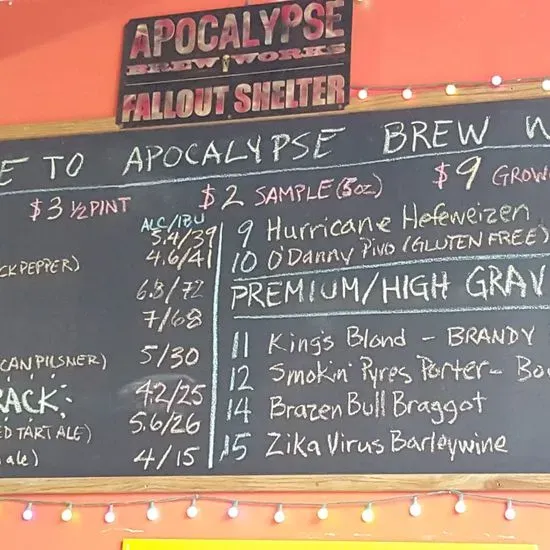 APOCALYPSE
BREW WORKS
FALLOUT SHELTER
E TO APOCALYPSE BREW W
$3 ½ PINT
$2 SAMPLE (5oz)
$9 GROW
ALC/IBU
5.4/39
CKPEPPER)
4.6/41
6.8/72
7/68
CAN PILSNER)
5/30
RACK
4.2/25
ED TART ALE)
5.6/26
ale)
4/15
9 Hurricane Hefeweizen
10 O'Danny Pivo (GLUTEN FREE)
PREMIUM/HIGH GRAV
11 King's Blond - BRANDY
12 Smokin' Pyres Porter - Bo
14 Brazen Bull Braggot
15 Zika Virus Barleywine